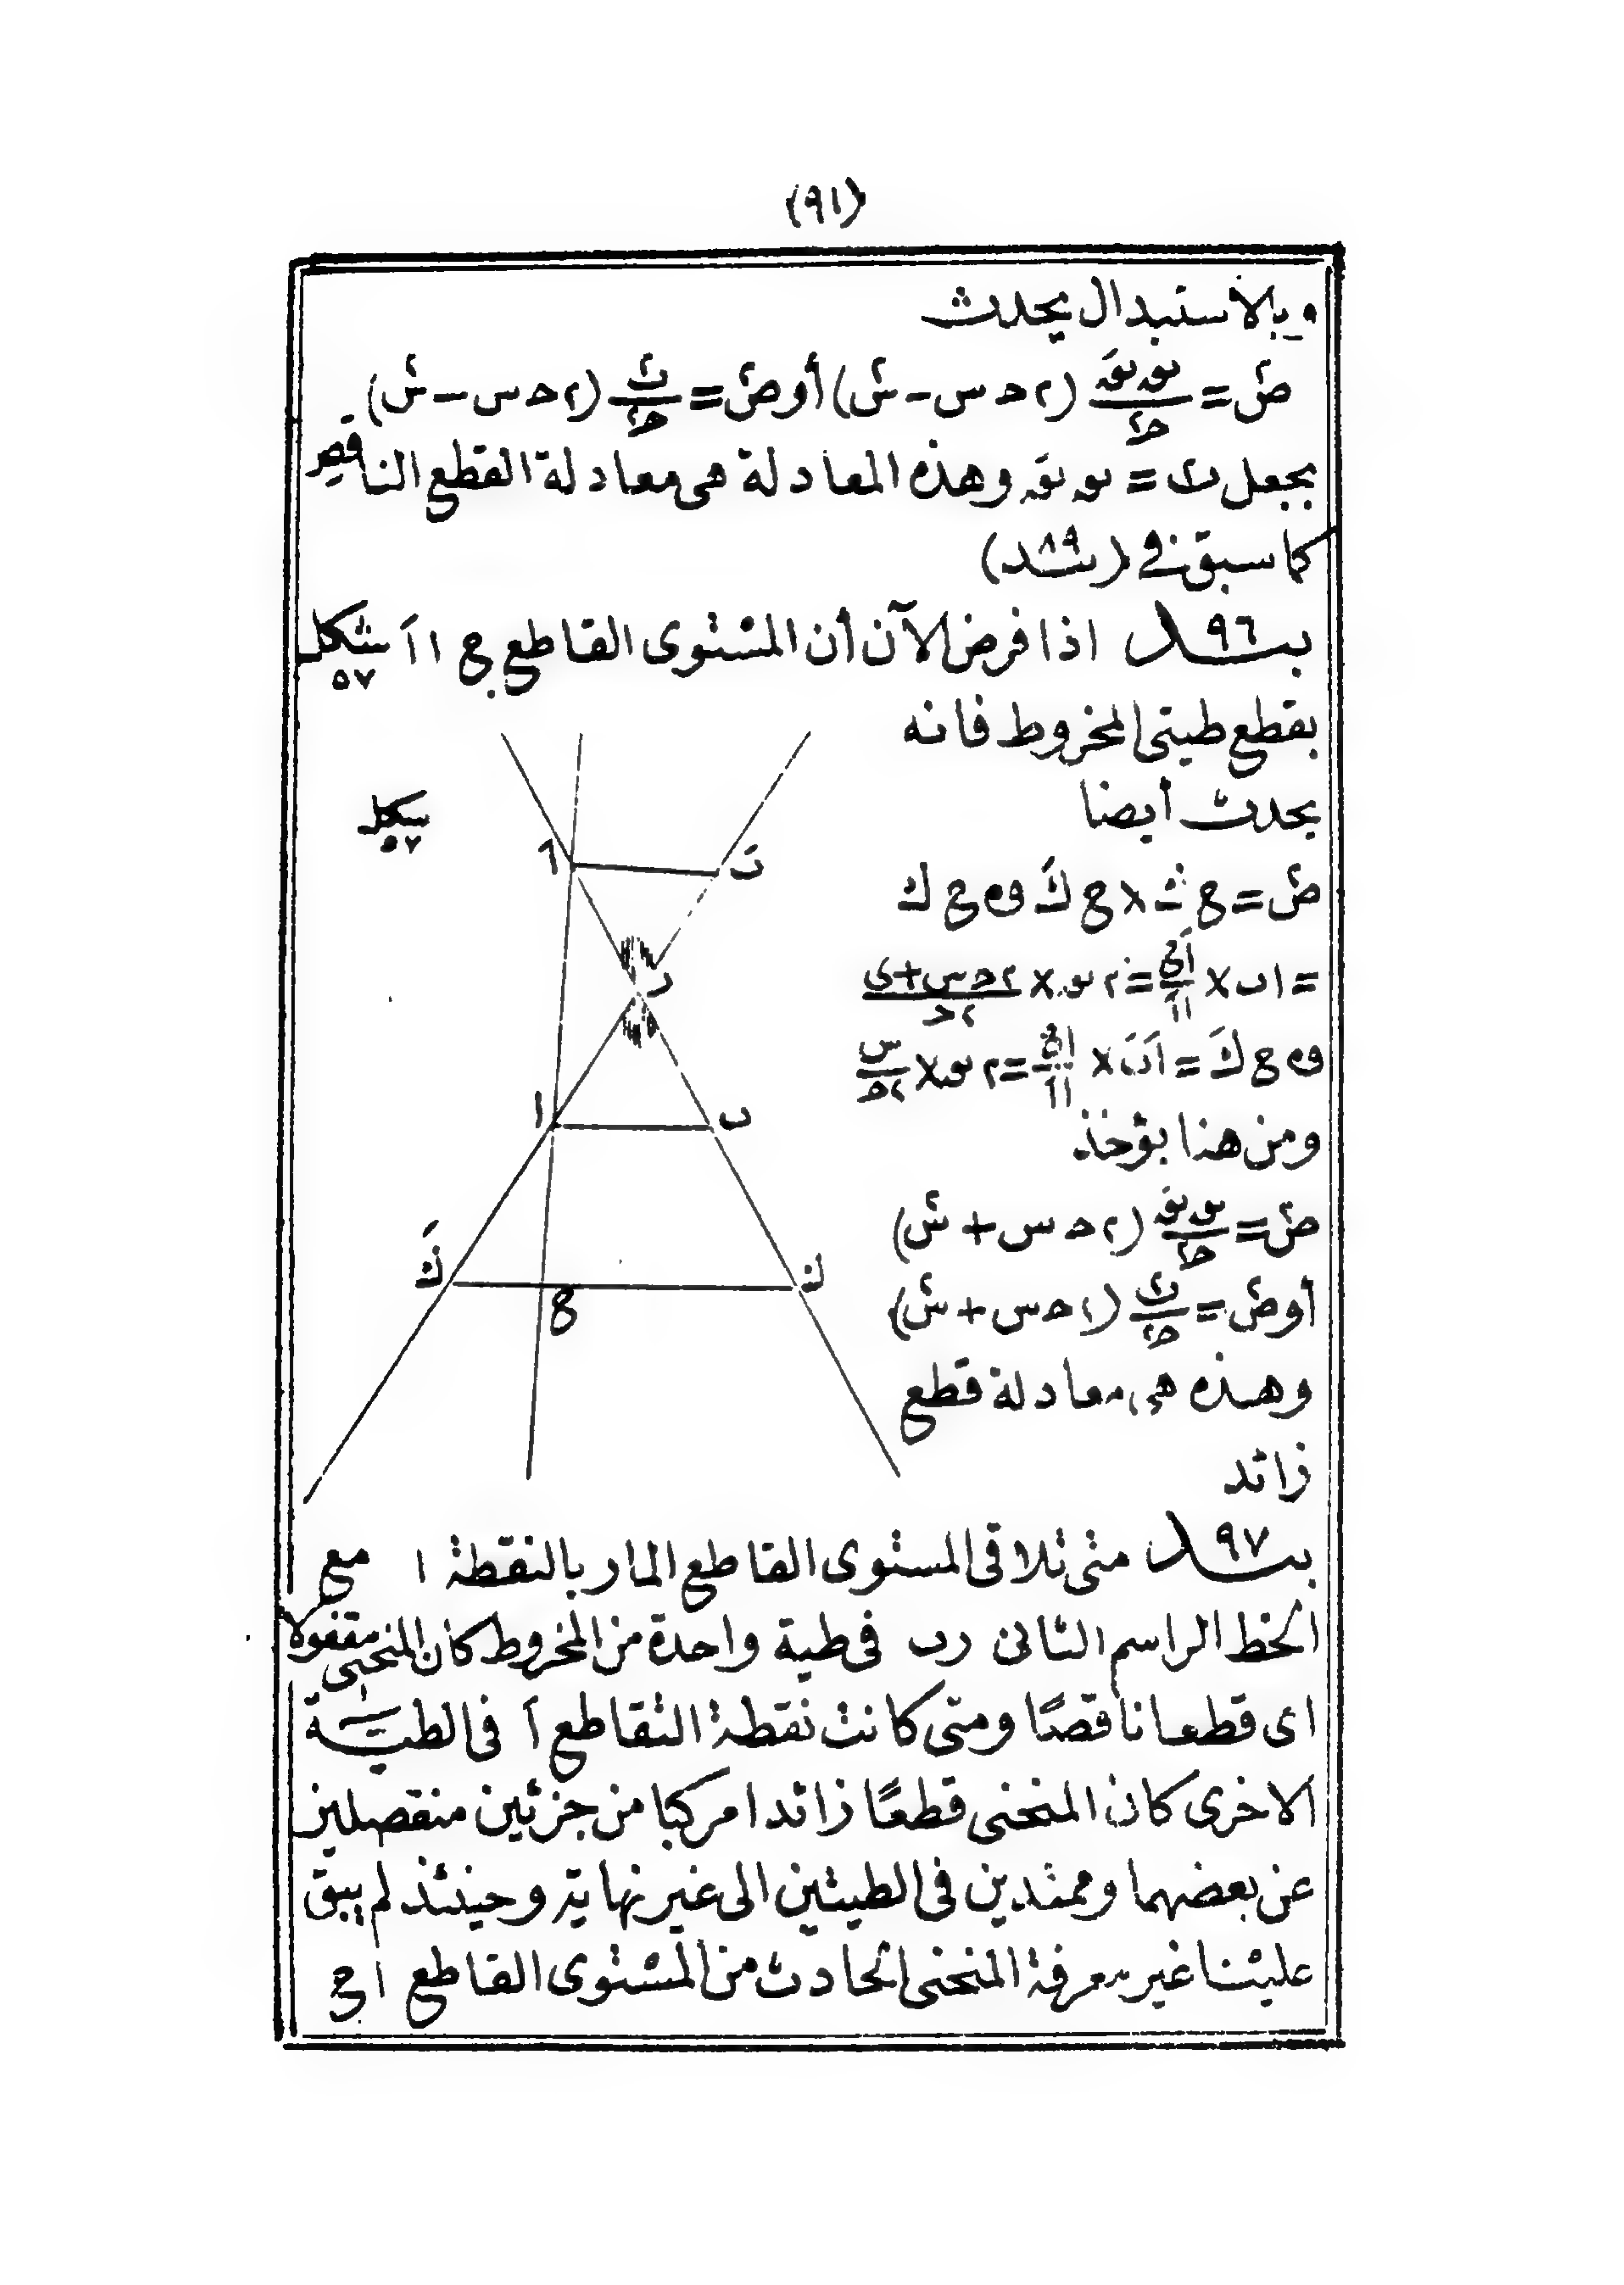 (٩١)
وبالاستبدال يحدث
ض٢ = نق نقَ / ح٢ (٢ ح س - س٢) أو ض٢ = ى٢ / ح٢ (٢ ح س - س٢)
بجعل ى٢ = نق نقَ وهذه المعادلة هى معادلة القطع الناقص
كما سبق فى (٨٩ بند)
بند ٩٦ اذا فرض الآن أن المستوى القاطع ج ا اَ شكل ٥٧
يقطع طيتى المخروط فانه
يحدث أيضا
شكل ٥٧
ض٢ = ج ك × ج كَ و ج ك
= ا ب × اَج / ااَ = ٢ نق × ٢ح+س / ٢ح
و ج كَ = اَ بَ × اج / ااَ = ٢ نقَ × س / ٢ح
ومن هنا يؤخذ
ض٢ = نق نقَ / ح٢ (٢ ح س + س٢)
أو ض٢ = ى٢ / ح٢ (٢ ح س + س٢)
وهذه هى معادلة قطع
زائد
اَ بَ
ر
ا ب
كَ ج ك
بند ٩٧ متى تلاقى المستوى القاطع المار بالنقطة ا مع
الخط الراسم الثانى رب فى طية واحدة من المخروط كان المنحنى مقفولا
اى قطعا ناقصًا ومتى كانت نقطة التقاطع اَ فى الطيـــة
الاخرى كان المنحنى قطعًا زائدا مركبا من جزئين منفصلين
عن بعضهما وممتدين فى الطيتين الى غير نهاية وحينئذ لم يبق
علينا غير معرفة المنحنى الحادث من المستوى القاطع ا ج